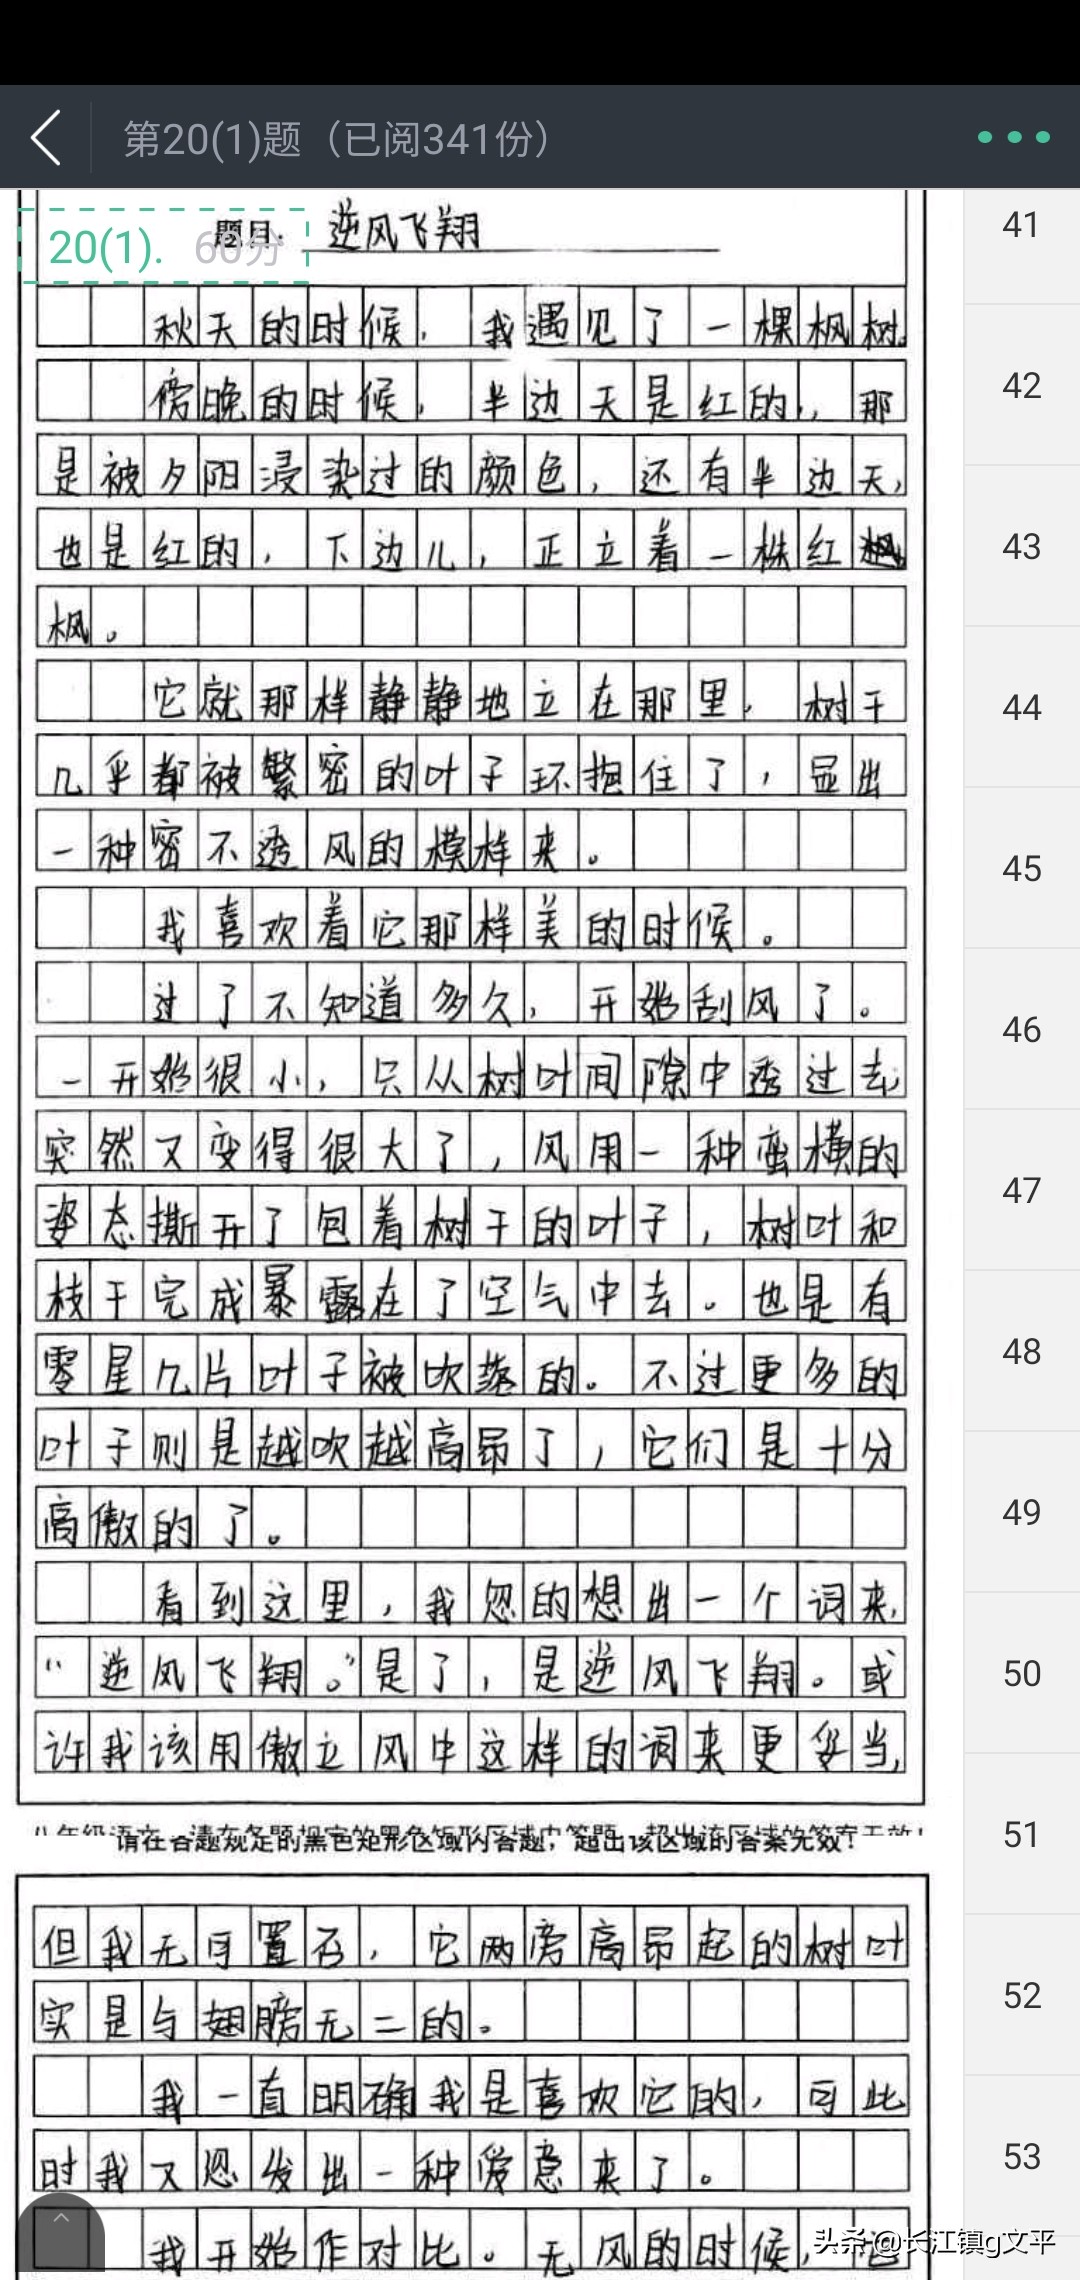 第20(1)题（已阅341份）
20(1). 60分
题目: 逆风飞翔
秋天的时候，我遇见了一棵枫树。
傍晚的时候，半边天是红的，那
是被夕阳浸染过的颜色，还有半边天，
也是红的，下边儿，正立着一株红
枫。
它就那样静静地立在那里，树干
几乎都被繁密的叶子环抱住了，显出
一种密不透风的模样来。
我喜欢着它那样美的时候。
过了不知道多久，开始刮风了。
一开始很小，只从树叶间隙中透过去，
突然又变得很大了，风用一种蛮横的
姿态撕开了包着树干的叶子，树叶和
枝干完成暴露在了空气中去。也是有
零星几片叶子被吹落的。不过更多的
叶子则是越吹越高昂了，它们是十分
高傲的了。
看到这里，我忽的想出一个词来，
“逆风飞翔。”是了，是逆风飞翔。或
许我该用傲立风中这样的词来更妥当，
请在各题规定的黑色矩形区域内答题，超出该区域的答案无效！
但我无可置否，它两旁高昂起的树叶
实是与翅膀无二的。
我一直明确我是喜欢它的，可此
时我又忽发出一种爱意来了。
我开始作对比。无风的时候，
头条@长江镇g文平
41
42
43
44
45
46
47
48
49
50
51
52
53